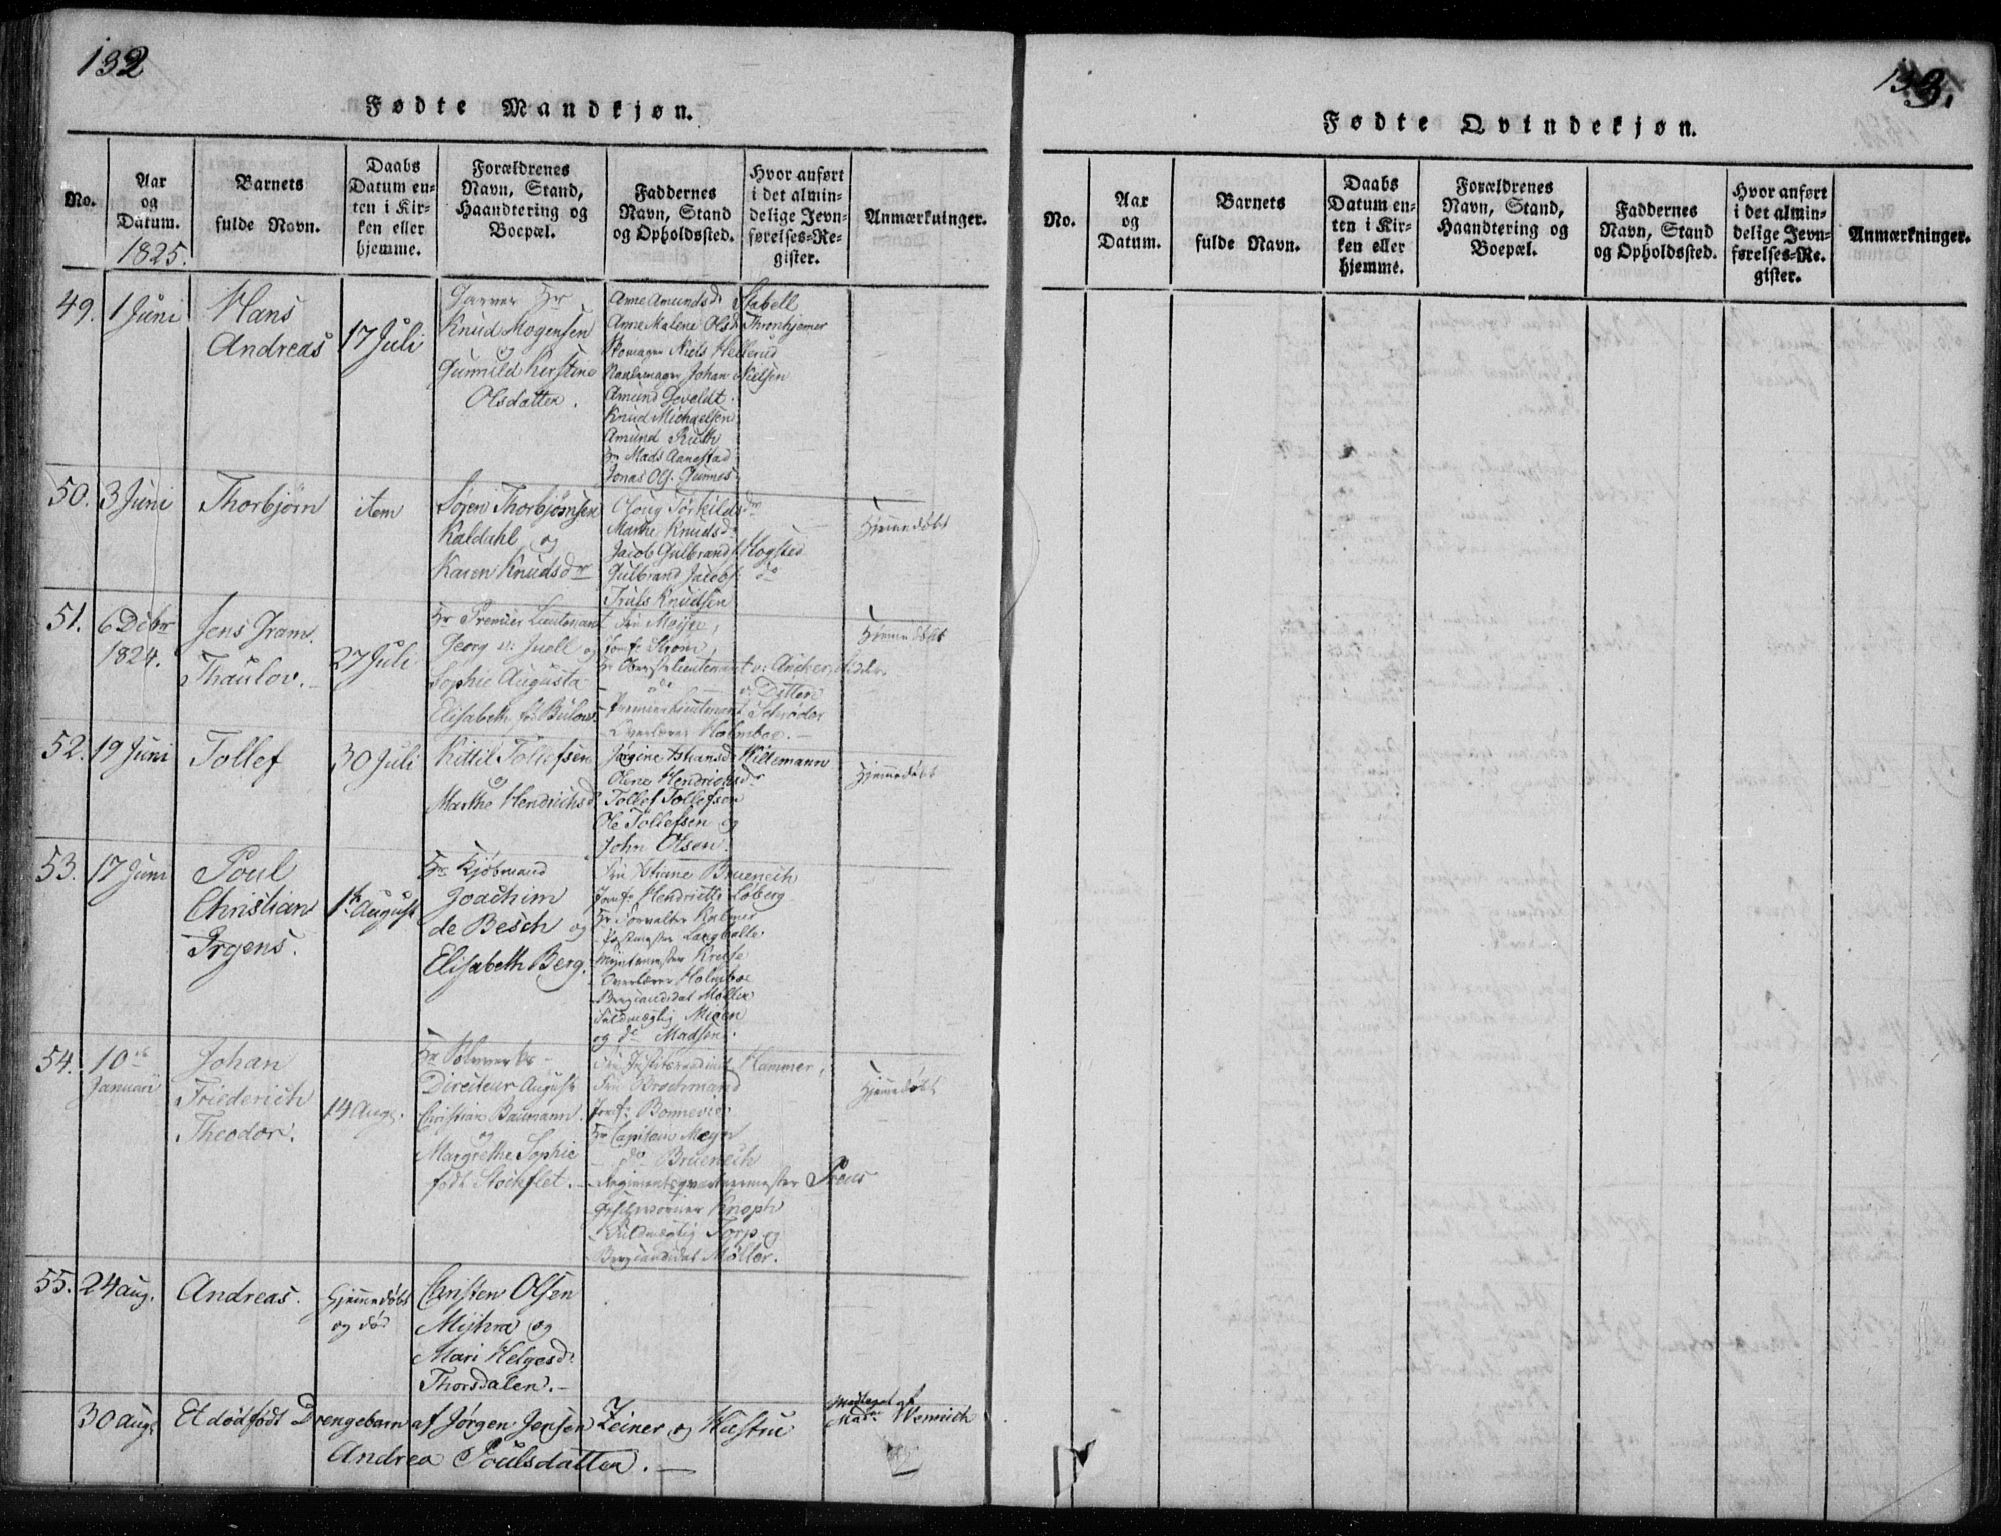 132
Fødte Mandkjøn.
No.
Aar og Datum.
Barnets fulde Navn.
Daabs Datum enten i Kirken eller hjemme.
Forældrenes Navn, Stand, Haandtering og Boepæl.
Faddernes Navn, Stand og Opholdssted.
Hvor anført i det almindelige Jevnførelses-Register.
Anmærkninger.
1825.
49. 1 Juni
Hans
Andreas
17 Juli
Garver Hr
Knud Mogensen
og
Gunnild Kirstine
Olsdatter.
Anne Amundsdr Stabell
Anne Malene Olsd. Thronhjemer
Skomager Niels Hellerud
Naalemager Johan Nielsen
Amund Gevoldt.
Knud Michaelsen
Amund Ruth
Hr Mads Aanestad
Jonas Ols. Gunnes
50. 3 Juni
Thorbjørn
item
Søren Thorbjørnsen
Kaldahl og
Karen Knudsdr
Oloug Torkildsdr
Marthe Knudsdr
Jacob Gulbrands. Hogsted
Gulbrand Jacobs. do
Truls Knudsen
Hjemmedøbt
51. 6 Debr
1824.
Jens Jram
Thaulov.
27 Juli
Hr Premier Lieutenant
Georg v: Juell og
Sophie Augusta
Elisabeth f: Bülow.
Fru Meyer,
Jomfr Strøm,
Hr Oberstlieutenant v: Ancher,
do v: Ditten
Premierlieutenant Schrøder
Overlærer Holmboe.
Hjemmedøbt
52. 19 Juni
Tollef
30 Juli
Kittil Tollefsen
og
Marthe Hendrichsd.
Jørgine Hansd. Wildemann
Olene Hendrichsdr
Tollef Tollefsen
Ole Tollefsen og
John Olsen.
Hjemmedøbt
53. 17 Juni
Poul
Christian
Irgens.
1te August
Hr Kjøbmand
Joachim
de Besch og
Elisabeth Berg.
Fru Stiane Bruenech
Jomfr Henriette Løberg
Hr Forvalter Kalmer
Postmester Langballe
Myntmester Kreise
Overlærer Holmboe
Bergcandidat Møller
Fuldmægtig Micen
og do Madsen.
54. 10de
Januari
Johan
Friederich
Theodor.
14 Aug.
Hr Sølvverks-
Directeur August
Christian Baumann
og
Margrethe Sophie
født Stockflet.
Fru Justitsraadinde Hammer,
Fru Brochmand
Jomfr: Bonnevie
Hr Capitain Meyn
do Bruenech
Regimentsqvartermester Preus
Geschworner Knoph
Fuldmægtig Torp og
Bergcandidat Møller.
Hjemmedøbt
55. 24 aug.
Andreas.
Hjemmedøbt
og død
Christen Olsen
Myhra og
Mari Helgesd.
Thorsdalen.
30 aug. Et dødfødt Drengebarn af Jørgen Jensen Zeiner og Hustru
Andrea Poulsdatter.
Modtaget af
Madm Wennich
133.
Fødte Qvindekjøn.
No.
Aar og Datum.
Barnets fulde Navn.
Daabs Datum enten i Kirken eller hjemme.
Forældrenes Navn, Stand, Haandtering og Boepæl.
Faddernes Navn, Stand og Opholdssted.
Hvor anført i det almindelige Jevnførelses-Register.
Anmærkninger.